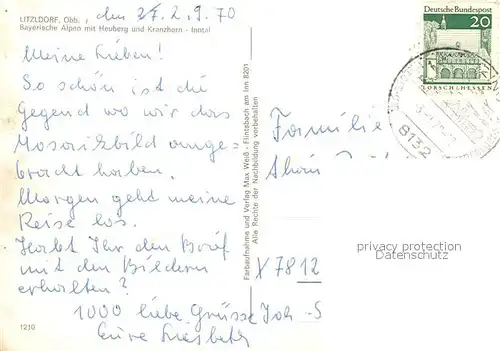 LITZLDORF, Obb., den 27.2.1970
Bayerische Alpen mit Heuberg und Kranzhorn - Inntal
Meine Lieben!
So schön ist die
Gegend wo wir das
Mosaikbild ange-
bracht haben.
Morgen geht meine
Reise los.
Habt Ihr den Brief
mit den Bildern
erhalten?
1000 liebe Grüsse
Eure Liesbeth
1210
Farbaufnahme und Verlag Max Weiß - Flintsbach am Inn 8201
Alle Rechte der Nachbildung vorbehalten
Deutsche Bundespost
20
LORSCH/HESSEN
8132
Familie
X 7812
privacy protection
Datenschutz